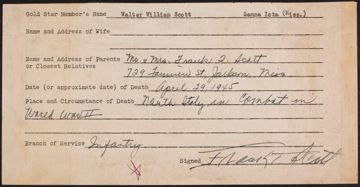 Gold Star Member's Name Walter William Scott Gamma Iota (Miss.)
Name and Address of Wife
Name and Address of Parents Mr. & Mrs. Frank T. Scott
or Closest Relatives 729 Fairview St. Jackson, Miss
Date (or approximate date) of Death April 29, 1945
Place and Circumstance of Death North Italy in Combat in
World War II
Branch of Service Infantry
Signed Frank T Scott